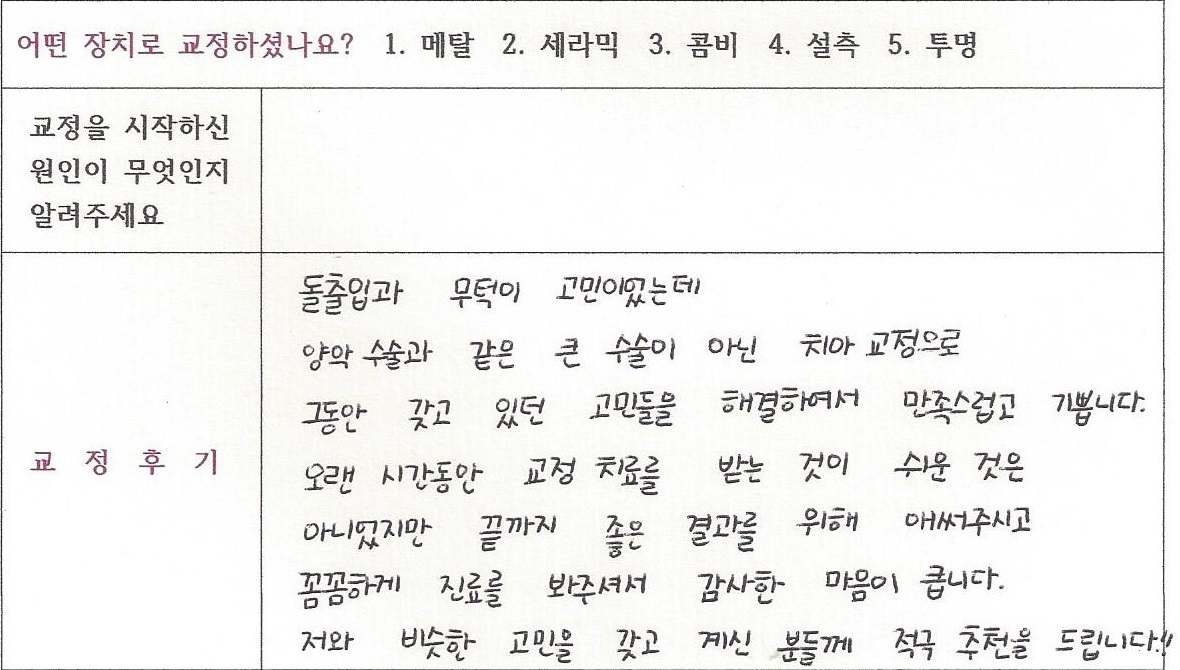 어떤 장치로 교정하셨나요? 1. 메탈 2. 세라믹 3. 콤비 4. 설측 5. 투명
교정을 시작하신
원인이 무엇인지
알려주세요
교 정 후 기
돌출입과 무턱이 고민이었는데
양악 수술과 같은 큰 수술이 아닌 치아 교정으로
그동안 갖고 있던 고민들을 해결하여서 만족스럽고 기쁩니다.
오랜 시간동안 교정 치료를 받는 것이 쉬운 것은
아니었지만 끝까지 좋은 결과를 위해 애써주시고
꼼꼼하게 진료를 봐주셔서 감사한 마음이 큽니다.
저와 비슷한 고민을 갖고 계신 분들께 적극 추천을 드립니다!!